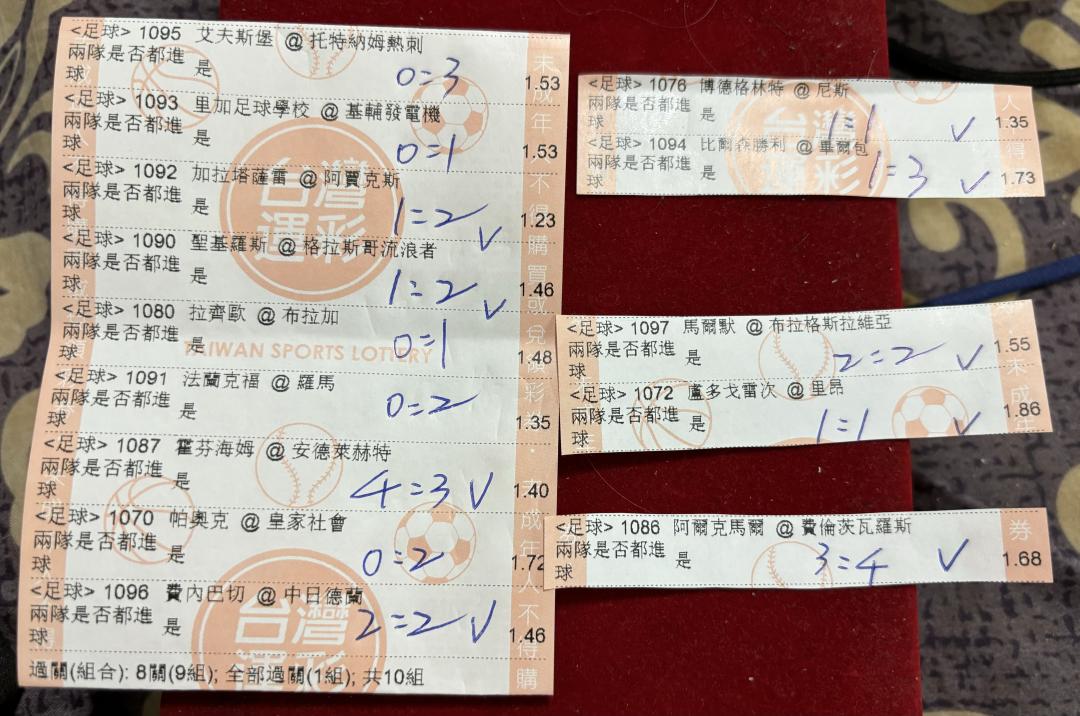 <足球> 1095 艾夫斯堡 @ 托特納姆熱刺
兩隊是否都進球 是 0=3 1.53
<足球> 1093 里加足球學校 @ 基輔發電機
兩隊是否都進球 是 0=1 1.53
<足球> 1092 加拉塔薩雷 @ 阿賈克斯
兩隊是否都進球 是 1=2 ✓ 1.23
<足球> 1090 聖基羅斯 @ 格拉斯哥流浪者
兩隊是否都進球 是 1=2 ✓ 1.46
<足球> 1080 拉齊歐 @ 布拉加
兩隊是否都進球 是 0=1 1.48
TAIWAN SPORTS LOTTERY
<足球> 1091 法蘭克福 @ 羅馬
兩隊是否都進球 是 0=2 1.35
<足球> 1087 霍芬海姆 @ 安德萊赫特
兩隊是否都進球 是 4=3 ✓ 1.40
<足球> 1070 帕奧克 @ 皇家社會
兩隊是否都進球 是 0=2 1.72
<足球> 1096 費內巴切 @ 中日德蘭
兩隊是否都進球 是 2=2 ✓ 1.46
過關(組合): 8關(9組); 全部過關(1組); 共10組
台灣運彩
台灣
<足球> 1076 博德格林特 @ 尼斯
兩隊是否都進球 是 1=1 ✓ 1.35
<足球> 1094 比爾森勝利 @ 畢爾包
兩隊是否都進球 是 1=3 ✓ 1.73
<足球> 1097 馬爾默 @ 布拉格斯拉維亞
兩隊是否都進球 是 2=2 ✓ 1.55
<足球> 1072 盧多戈雷次 @ 里昂
兩隊是否都進球 是 1=1 ✓ 1.86
<足球> 1086 阿爾克馬爾 @ 費倫茨瓦羅斯
兩隊是否都進球 是 3=4 ✓ 1.68